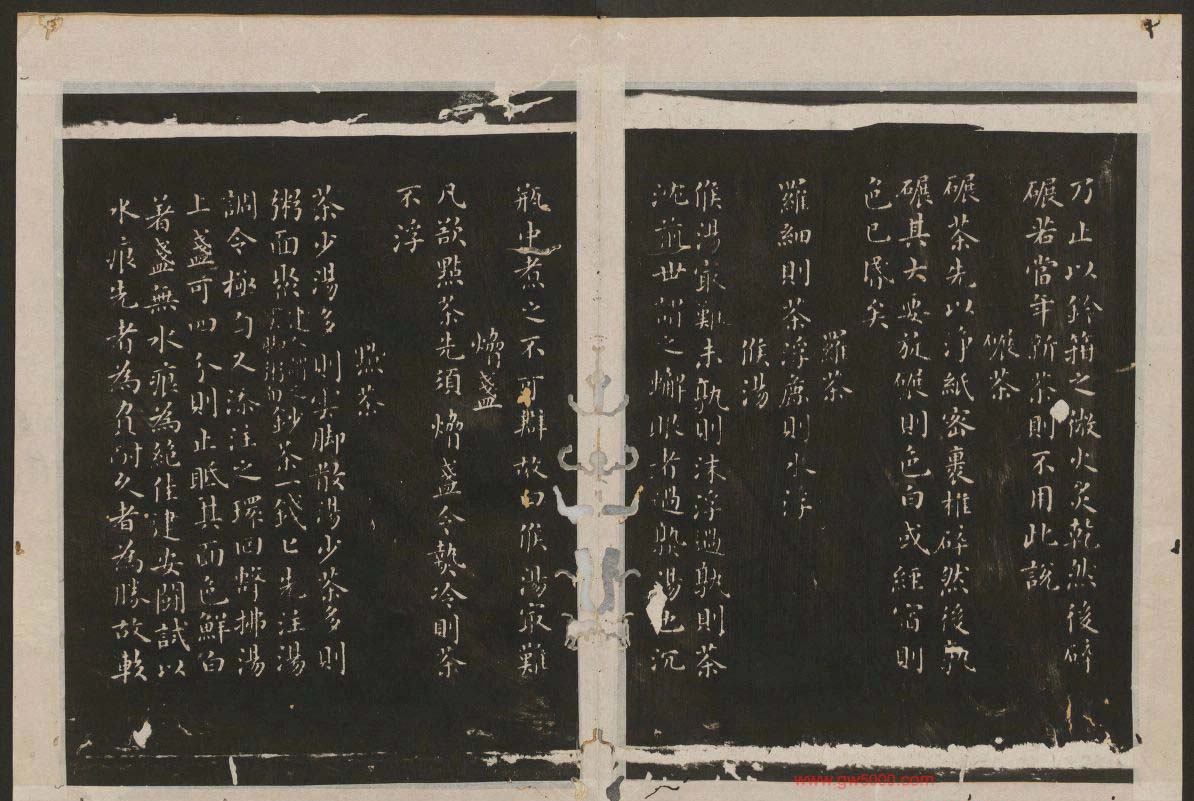 乃止以鈐箝之微火炙乾然後碎
碾若當年新茶則不用此說
碾茶
碾茶先以淨紙密裹椎碎然後孰
碾其大要旋碾則色白或經宿則
色已昬矣
羅茶
羅細則茶浮麤則水浮
候湯
候湯最難未孰則沫浮過孰則茶
沈前世謂之蠏眼者過孰湯也沉
瓶中煮之不可辯故曰候湯最難
熁盞
凡欲點茶先須熁盞令熱冷則茶
不浮
點茶
茶少湯多則雲脚散湯少茶多則
粥面聚鈔茶一錢匕先注湯
調令極勻又添注之環回擊拂湯
上盞可四分則止眡其面色鮮白
著盞無水痕為絶佳建安鬬試以
水痕先者為負耐久者為勝故較
www.gw5000.com